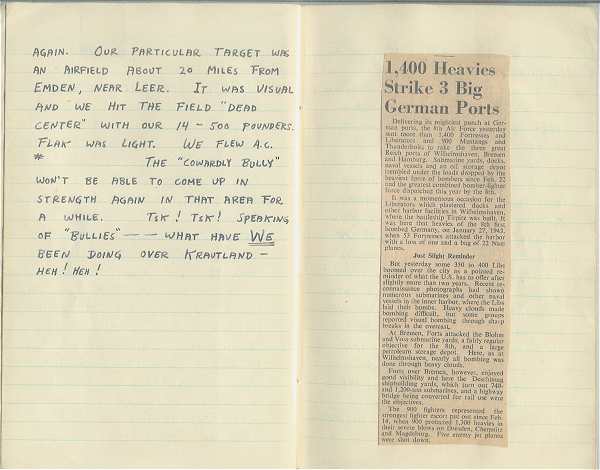 AGAIN. OUR PARTICULAR TARGET WAS
AN AIRFIELD ABOUT 20 MILES FROM
EMDEN, NEAR LEER. IT WAS VISUAL
AND WE HIT THE FIELD "DEAD
CENTER" WITH OUR 14 - 500 POUNDERS.
FLAK WAS LIGHT. WE FLEW A.C.
* THE "COWARDLY BULLY"
WON'T BE ABLE TO COME UP IN
STRENGTH AGAIN IN THAT AREA FOR
A WHILE. TSK! TSK! SPEAKING
OF "BULLIES" — — WHAT HAVE WE
BEEN DOING OVER KRAUTLAND —
HEH! HEH!
1,400 Heavies
Strike 3 Big
German Ports
Delivering its mightiest punch at Ger-
man ports, the 8th Air Force yesterday
sent more than 1,400 Fortresses and
Liberators and 900 Mustangs and
Thunderbolts to rake the three great
Reich ports of Wilhelmshaven, Bremen
and Hamburg. Submarine yards, docks,
naval vessels and an oil storage depot
trembled under the loads dropped by the
heaviest force of bombers since Feb. 22
and the greatest combined bomber-fighter
force dispatched this year by the 8th.
It was a momentous occasion for the
Liberators which plastered docks and
other harbor facilities in Wilhelmshaven,
where the battleship Tirpitz was built. It
was here that heavies of the 8th first
bombed Germany, on January 27, 1943,
when 53 Fortresses attacked the harbor
with a loss of one and a bag of 22 Nazi
planes.
Just Slight Reminder
But yesterday some 350 to 400 Libs
boomed over the city as a pointed re-
minder of what the U.S. has to offer after
slightly more than two years. Recent re-
connaissance photographs had shown
numerous submarines and other naval
vessels in the inner harbor, where the Libs
laid their bombs. Heavy clouds made
bombing difficult, but some groups
reported visual bombing through sharp
breaks in the overcast.
At Bremen, Forts attacked the Blohm
and Voss submarine yards, a fairly regular
objective for the 8th, and a large
petroleum storage depot. Here, as at
Wilhelmshaven, nearly all bombing was
done through heavy clouds.
Forts over Bremen, however, enjoyed
good visibility and here the Deschimag
shipbuilding yards, which turn out 740-
and 1,200-ton submarines, and a highway
bridge being converted for rail use were
the objectives.
The 900 fighters represented the
strongest fighter escort put out since Feb.
14, when 900 protected 1,300 heavies in
their severe blows on Dresden, Chemnitz
and Magdeburg. Five enemy jet planes
were shot down.